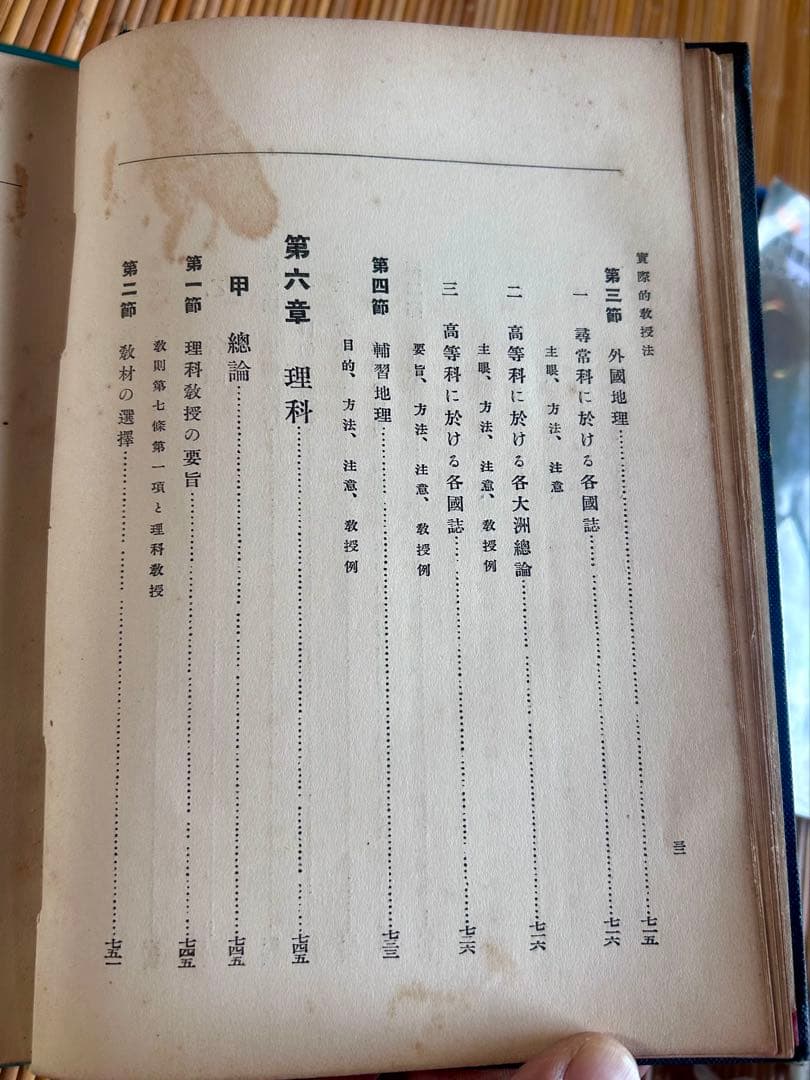 實際的敎授法
三二
第三節 外國地理……七一五
一 尋常科に於ける各國誌……七一六
主眼、方法、注意
二 高等科に於ける各大洲總論……七一六
主眼、方法、注意、敎授例
三 高等科に於ける各國誌……七二六
要旨、方法、注意、敎授例
第四節 輔習地理……七三三
目的、方法、注意、敎授例
第六章 理科……七四五
甲 總論……七四五
第一節 理科敎授の要旨……七四五
敎則第七條第一項と理科敎授
第二節 敎材の選擇……七五一